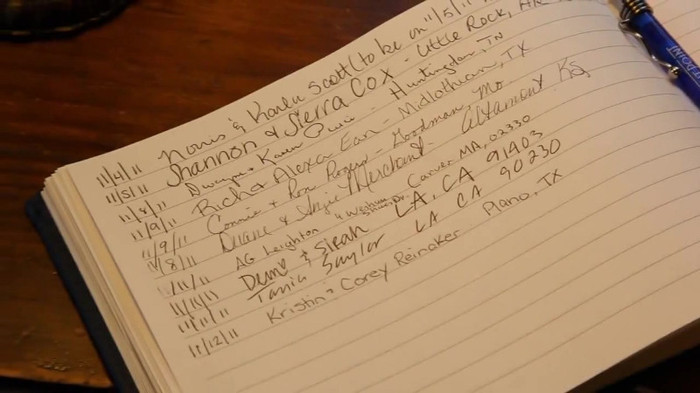 11/4/11 & Karen Scott (to be on 11/5/11
11/5/11 Shannon & Sierra Cox - Little Rock, AR
11/8/11 Dwayne & Karen - Huntingdon, TN
11/9/11 Richard Alexa - Midlothian, TX
11/9/11 Connie + Ron Rogers - Goodman, Mo
11/8/11 Duane & Angie Merchant - Altamont KS
11/11/11 AG Leighton Carver MA, 02330
11/11/11 & LA, CA 91403
11/11/11 Tania Saylor LA CA 90230
11/12/11 Kristin & Corey Reinaker Plano, TX
POINT